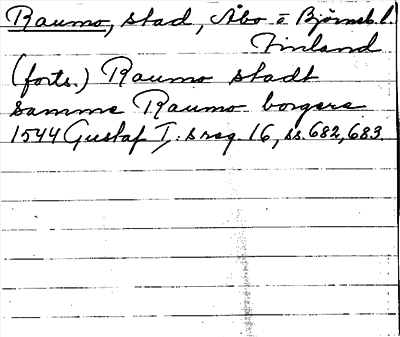 Raumo, stad, Åbo o Björneb. l.
Finland
(forts.) Raumo stadt
samme Raumo borgare
1544 Gustaf I:s reg. 16, ss. 682, 683.